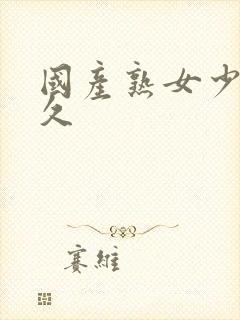 國產熟女少
久
賽維